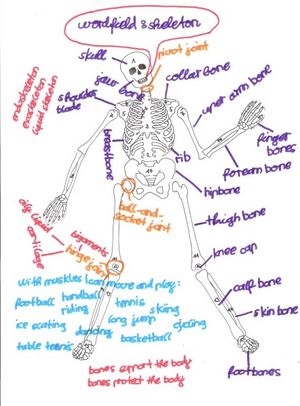 wordfield & skeleton
skull
pivot joint
endoskeleton
exoskeleton
liquid skeleton
jaw bone
collar bone
shoulder blade
upper arm bone
breastbone
finger bones
rib
forearm bone
hipbone
ball-and-socket joint
thigh bone
liquid
cartilage
ligaments
hinge joint
knee cap
With muscles I can move and play:
football handball tennis
riding skiing
ice scating long jump cycling
dancing
table tennis basketball
calf bone
skin bone
footbones
bones support the body
bones protect the body